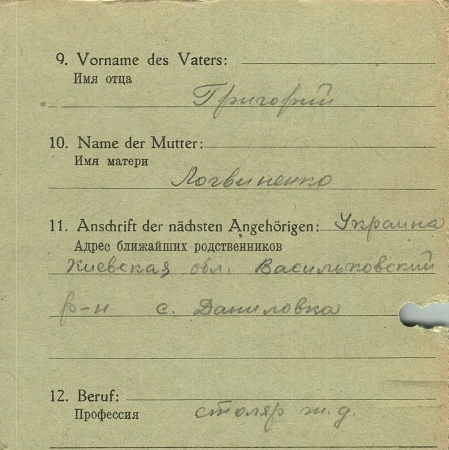 9. Vorname des Vaters:
Имя отца
Григорий
10. Name der Mutter:
Имя матери
Логвиненко
11. Anschrift der nächsten Angehörigen: Украина
Адрес ближайших родственников
Киевская обл. Васильковский
р-н с. Даниловка
12. Beruf:
Профессия столяр ж.д.